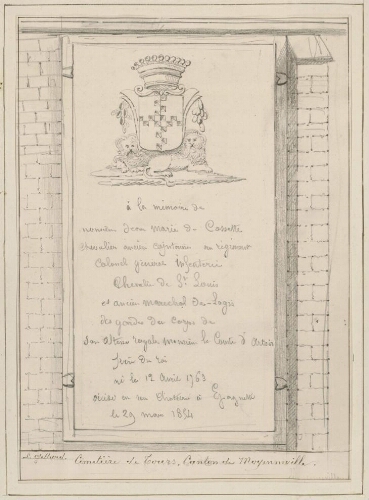 à la mémoire de
monsieur Jean marie de Cossette
chevalier ancien capitaine au régiment
Colonel général Infanterie
Chevalier de St Louis
et ancien marechal des Logis
des gardes du corps de
Son Altesse royale monsieur le Comte d'Artois
frère du roi
né le 12 Avril 1763
décédé en son Château à
le 29 mars 1854
Cimetière de Tours, Canton de Moyenneville.